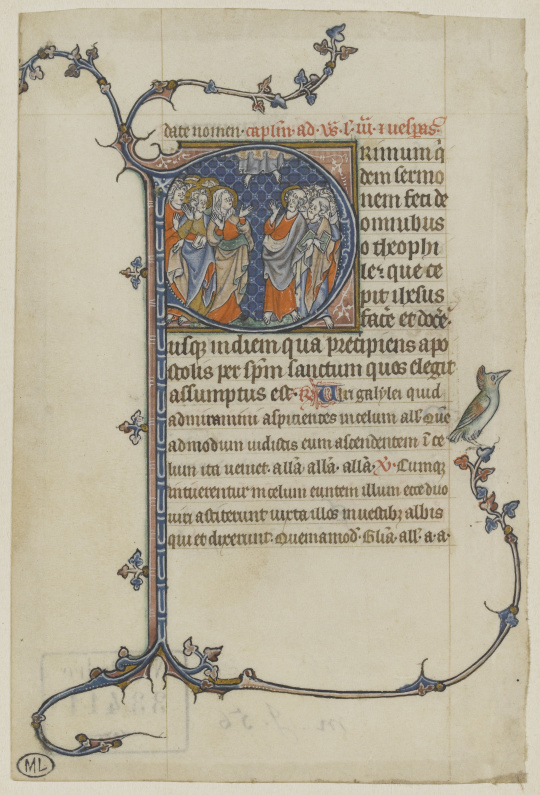 date nomen. caplm. ad. vs. s. iii. ⁊ uespas.
Rimum q̄
dem sermo
nem feci de
omnibus
o theophi
le. que ce
pit ihesus
facē et docē.
usq; in diem qua precipiens apo
stolis per sp̄m sanctum quos elegit
assumptus est. R Viri galylei quid
admiramini aspicientes in celum all'. Que
admodum uidistis eum ascendentem ī ce
lum ita ueniet. alla. alla. alla. V. Cumq;
intuerentur in celum euntem illum ecce duo
uiri astiterunt iuxta illos in uestib; albis
qui et dixerunt. Quemamod'. Gl̄ia. all'. a. a.
ML